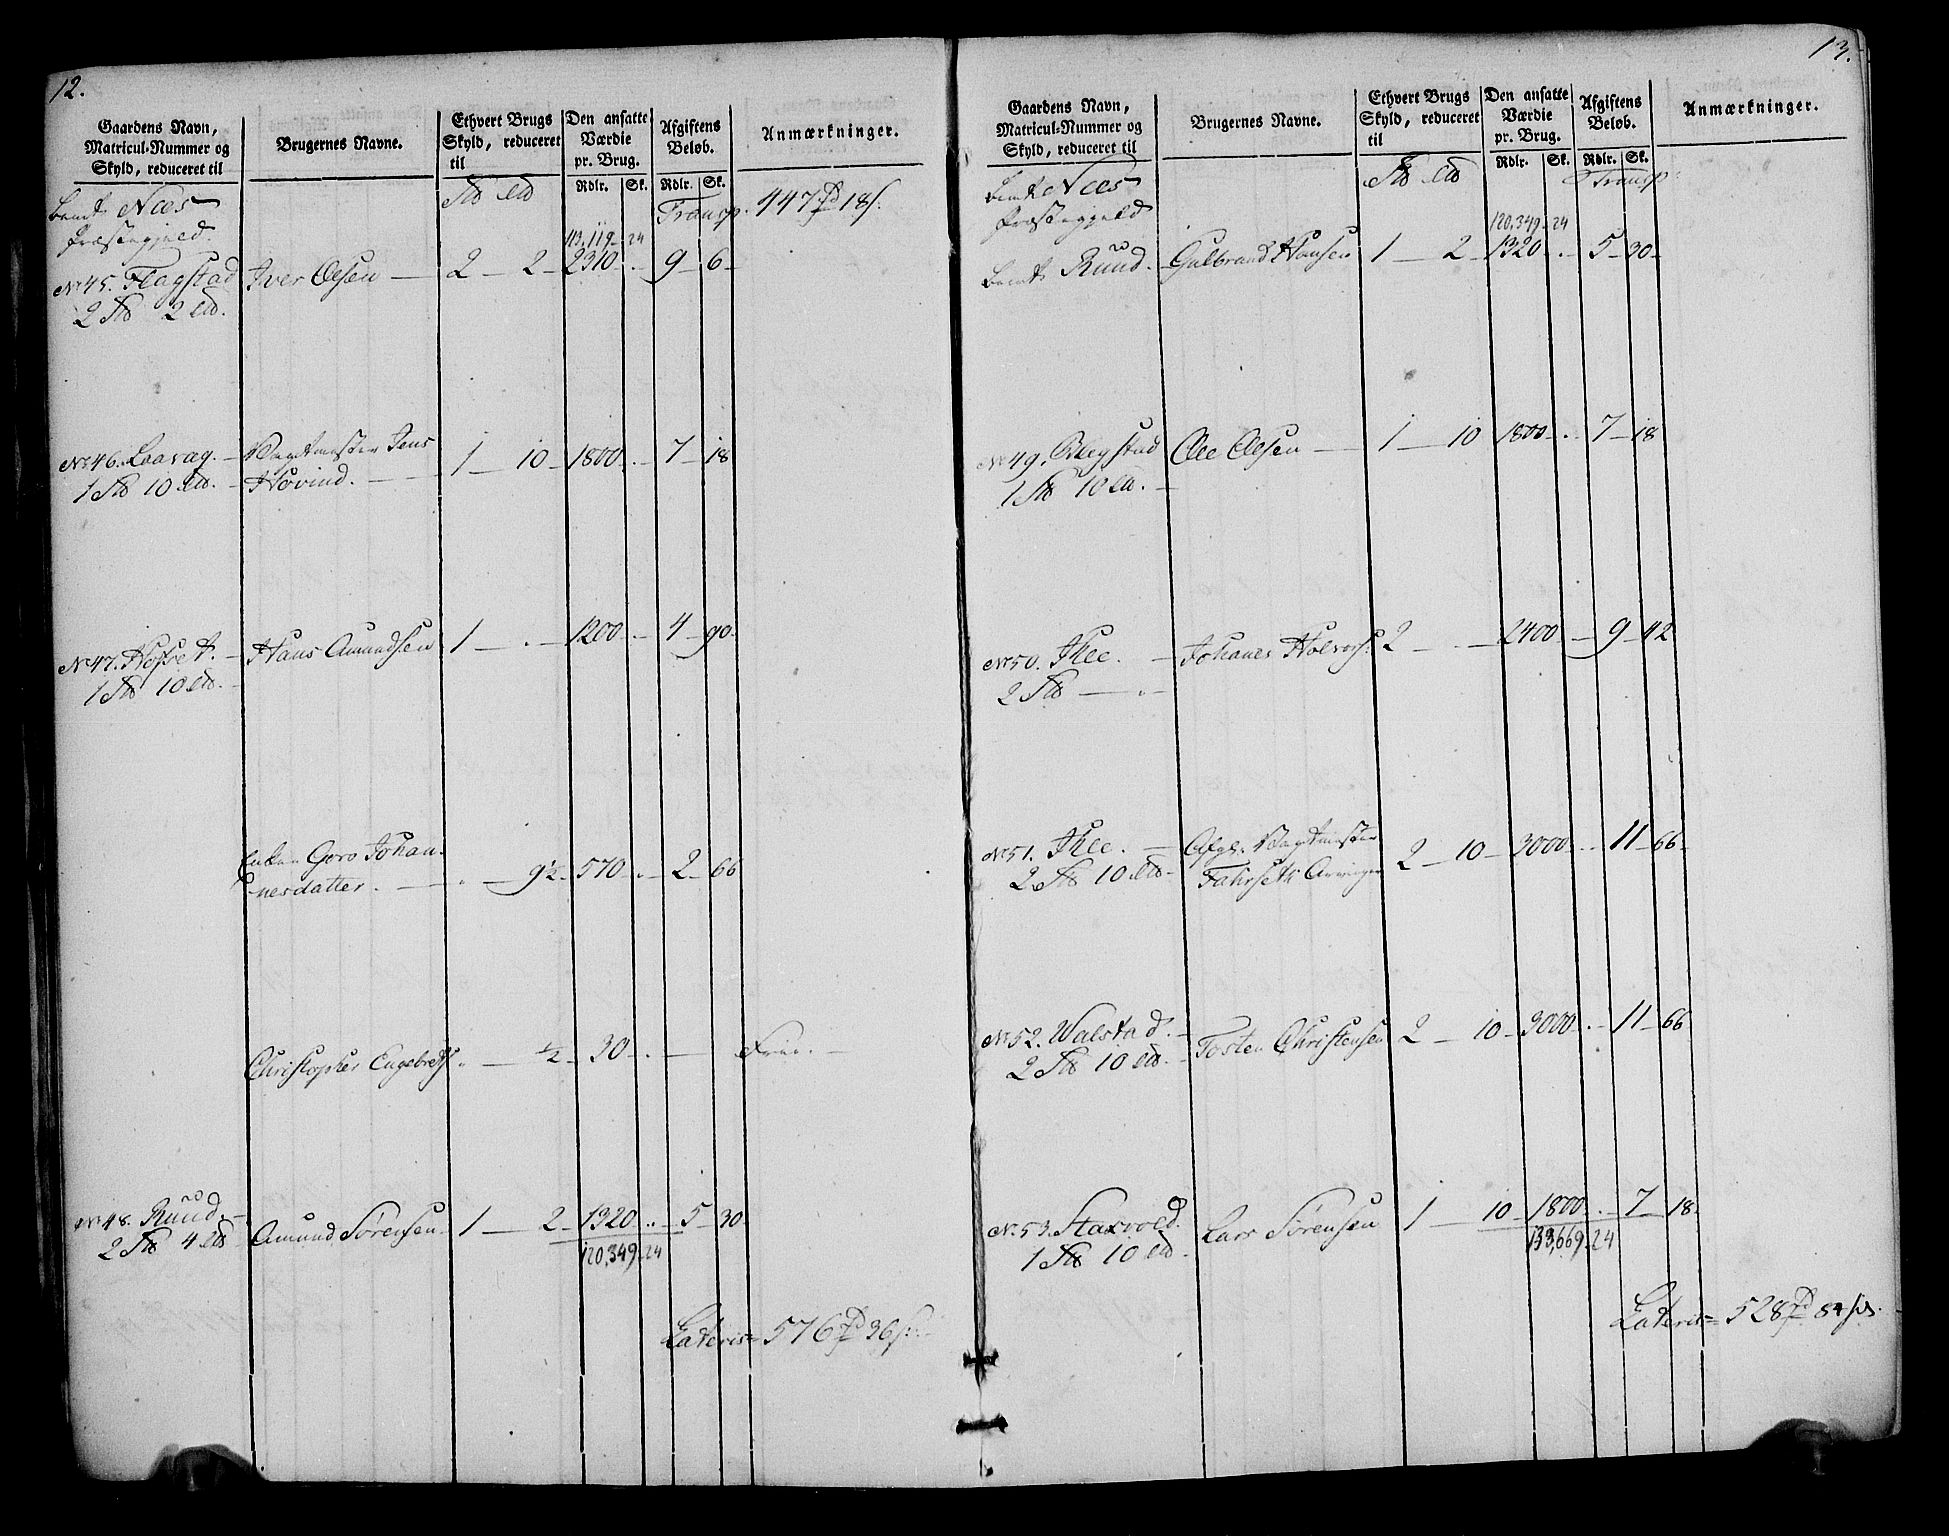 12.
Gaardens Navn,
Matricul-Nummer og
Skyld, reduceret til
Brugernes Navne.
Ethvert Brugs
Skyld, reduceret
til
Den ansatte
Værdie
pr. Brug.
Rdlr. Sk.
Afgiftens
Beløb.
Rdlr. Sk.
Anmærkninger.
Næs
Præstegjeld.
Transp. 447 18
113,119 - 24
No 45. Flagstad Iver Olsen — 2 — 2 — 2310 - . 9 - 6 -
2 2
No 46. Laavag. — Vagtmester Jens 1 — 10 — 1800 - . - 7 - 18
1 10 Høvind. —
No 47. Hofset. — Hans Amundsen 1 — . — 1200 - . - 4 - 90 -
1 10
Enken Goro Johan-
nesdatter. — „ — 9½ - 570 - . - 2 - 66
Christopher Engebrets „ — ½ - 30 - . — Frie. —
No 48. Ruud. — Amund Sørensen 1 — 2 - 1320 - „ - 5 - 30 -
2 4
120,349 - 24
Lateris = 576 36
13.
Gaardens Navn,
Matricul-Nummer og
Skyld, reduceret til
Brugernes Navne.
Ethvert Brugs
Skyld, reduceret
til
Den ansatte
Værdie
pr. Brug.
Rdlr. Sk.
Afgiftens
Beløb.
Rdlr. Sk.
Anmærkninger.
Næs
Præstegjeld
Transp.
120,349 - 24
Ruud. Gulbrand Hansen 1 — 2 - 1320 - . - 5 - 30 -
No 49. Ole Olsen — 1 — 10 1800 - . - 7 - 18
1 10
No 50. Thee. — Johanes 2 — . — 2400 - — 9 - 42
2 — „ —
No 51. Thee. — Afgl. Vagtmester 2 — 10 — 3000 - . - 11 - 66 -
2 10 Fahrseth
No 52. Walstad. — Tosten Christensen 2 — 10 - 3000 - . - 11 - 66
2 10
No 53. Staxvold. Lars Sørensen 1 — 10 - 1800 - . - 7 - 18 -
1 10
133,669 - 24
Lateris = 528 84